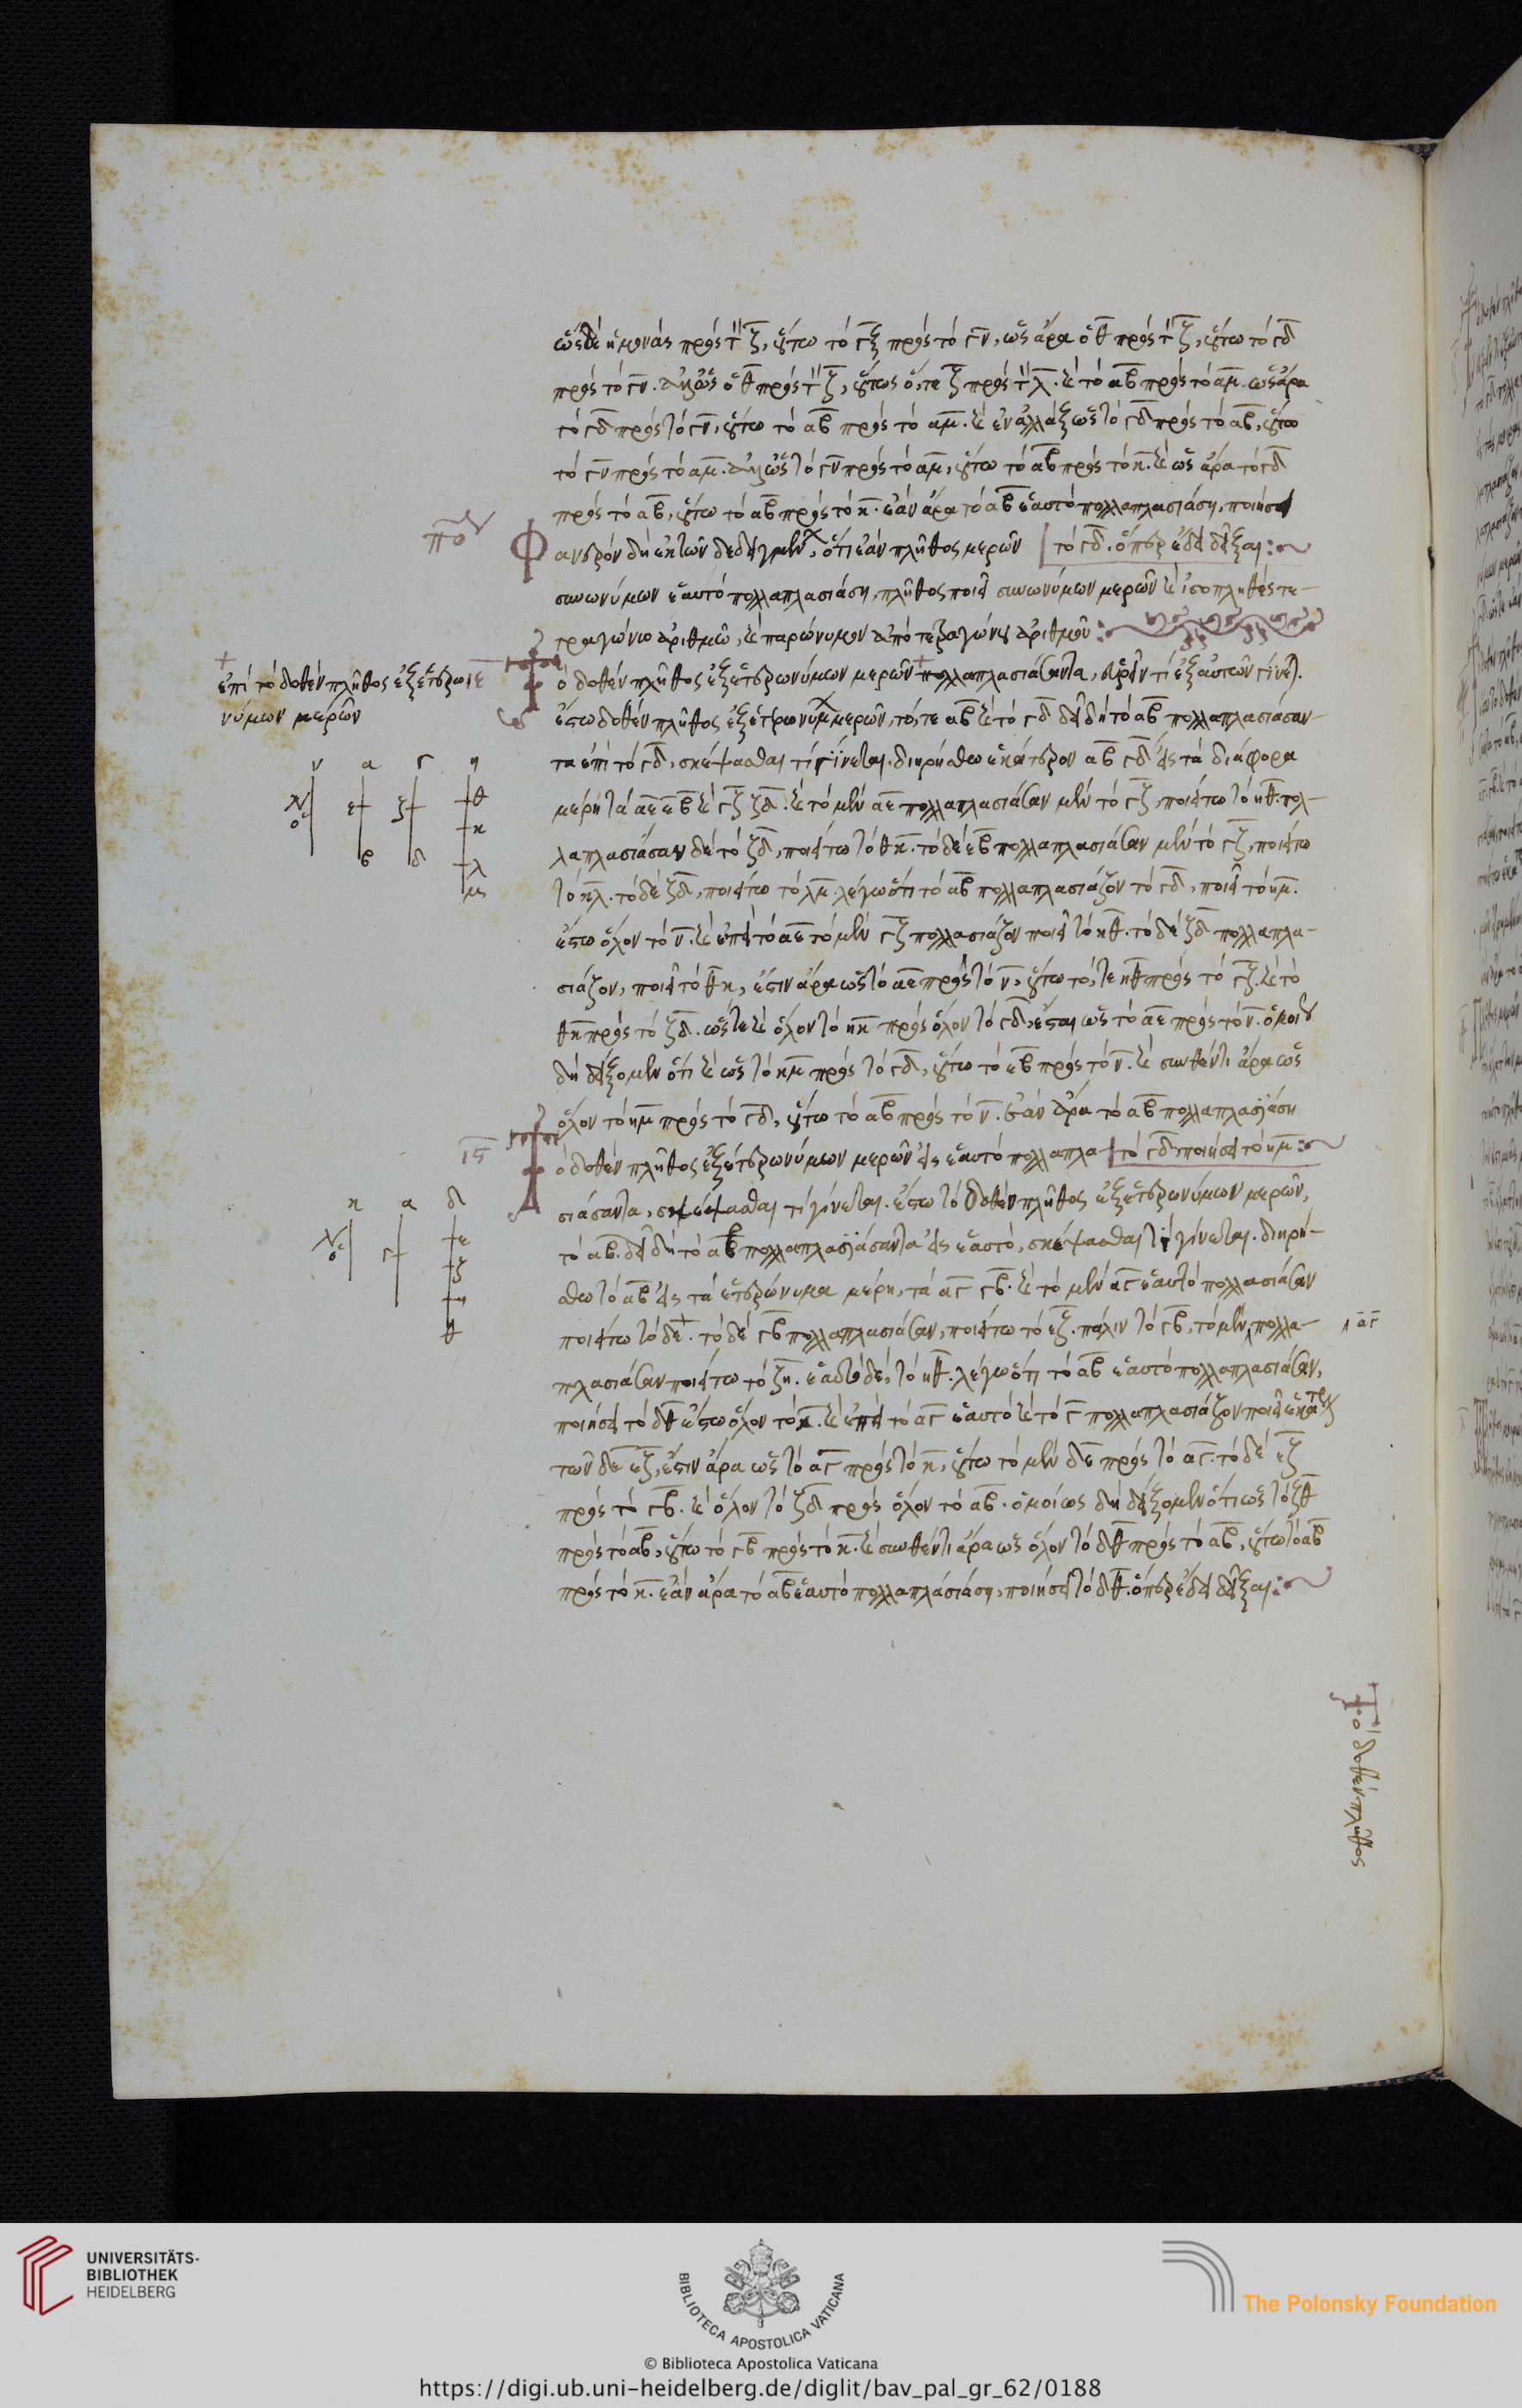 ὡς δὲ ἡ μονὰς πρὸς τὸν ζ, οὕτω τὸ γξ πρὸς τὸ γν, ὡς ἄρα ὁ θ πρὸς τὸν ζ, οὕτω τὸ γδ
πρὸς τὸ γν. ἀλλ' ὡς ὁ θ πρὸς τὸν ζ, οὕτως ὅ, τε ζ πρὸς τὸν λ. καὶ τὸ αβ πρὸς τὸ αμ. ὡς ἄρα
τὸ γδ πρὸς τὸ γν, οὕτω τὸ αβ πρὸς τὸ αμ. καὶ ἐναλλὰξ ὡς τὸ γδ πρὸς τὸ αβ, οὕτω
τὸ γν πρὸς τὸ αμ. ἀλλ' ὡς τὸ γν πρὸς τὸ αμ, οὕτω τὸ αβ πρὸς τὸ κ. καὶ ὡς ἄρα τὸ γδ
πρὸς τὸ αβ, οὕτω τὸ αβ πρὸς τὸ κ. ἐὰν ἄρα τὸ αβ ἑαυτὸ πολλαπλασιάση, ποιήσει
τὸ γδ. ὅπερ ἔδει δεῖξαι:~
Φανερὸν δὴ ἐκ τῶν δεδειγμένων, ὅτι ἐὰν πλῆθος μερῶν
συνωνύμων ἑαυτὸ πολλαπλασιάση, πλῆθος ποιεῖ συνωνύμων μερῶν καὶ ἰσοπληθὲς τε-
τραγώνω ἀριθμῶ, καὶ παρώνυμον ἀπὸ τετραγώνου ἀριθμοῦ:~
ιε Τὸ δοθὲν πλῆθος ἐξ ἑτερωνύμων μερῶν πολλαπλασιάσαντα, εὑρεῖν τί ἐξ αὐτῶν γίνεται.
ἐπὶ τὸ δοθὲν πλῆθος ἐξ ἑτερω
νύμων μερῶν
ἔστω δοθὲν πλῆθος ἐξ ἑτερωνύμων μερῶν, τό, τε αβ καὶ τὸ γδ δεῖ δὴ τὸ αβ πολλαπλασιάσαν-
τα ἐπὶ τὸ γδ, σκέψασθαι τί γίνεται. διηρήσθω ἑκάτερον αβ γδ εἰς τὰ διάφορα
μέρη τὰ αε εβ καὶ γζ ζδ. καὶ τὸ μὲν αε πολλαπλασιάσαν μὲν τὸ γζ, ποιείτω τὸ ηθ. πολ-
λαπλασιάσαν δὲ τὸ ζδ, ποιείτω τὸ θκ. τὸ δὲ εβ πολλαπλασιάσαν μὲν τὸ γζ, ποιείτω
τὸ κλ. τὸ δὲ ζδ, ποιείτω τὸ λμ. λέγω ὅτι τὸ αβ πολλαπλασιάζον τὸ γδ, ποιεῖ τὸ ημ.
ἔστω ὅλον τὸ ν. καὶ ἐπεὶ τὸ αε τὸ μὲν γζ πολλασιάζον ποιεῖ τὸ ηθ. τὸ δὲ ζδ πολλαπλα-
σιάζον, ποιεῖ τὸ θκ, ἔστιν ἄρα ὡς τὸ αε πρὸς τὸ ν, οὕτω τό, τε ηθ πρὸς τὸ γζ. καὶ τὸ
θκ πρὸς τὸ ζδ. ὥστε καὶ ὅλον τὸ ηκ πρὸς ὅλον τὸ γδ, ἔσται ὡς τὸ αε πρὸς τὸ ν. ὁμοίως
δὴ δείξομεν ὅτι καὶ ὡς τὸ κμ πρὸς τὸ γδ, οὕτω τὸ εβ πρὸς τὸ ν. καὶ συνθέντι ἄρα ὡς
ὅλον τὸ ημ πρὸς τὸ γδ, οὕτω τὸ αβ πρὸς τὸ ν. ἐὰν ἄρα τὸ αβ πολλαπλασιάση
τὸ γδ, ποιήσει τὸ ημ:~
ις Τὸ δοθὲν πλῆθος ἐξ ἑτερωνύμων μερῶν εἰς ἑαυτὸ πολλαπλα
σιάσαντα, σκέψασθαι τί γίνεται. ἔστω τὸ δοθὲν πλῆθος ἐξ ἑτερωνύμων μερῶν,
τὸ αβ. δεῖ δὴ τὸ αβ πολλαπλασιάσαντα εἰς ἑαυτό, σκέψασθαι τί γίνεται. διηρή-
σθω τὸ αβ εἰς τὰ ἑτερώνυμα μέρη, τὰ αγ γβ. καὶ τὸ μὲν αγ ἑαυτὸ πολλασιάσαν
ποιείτω τὸ δε. τὸ δὲ γβ πολλαπλασιάσαν, ποιείτω τὸ εζ. πάλιν τὸ γβ, τὸ μὲν πολλα-
αγ
πλασιάσαν ποιείτω τὸ ζη. ἑαυτὸ δὲ, τὸ ηθ. λέγω ὅτι τὸ αβ ἑαυτὸ πολλαπλασιάσαν,
ποιήσει τὸ δθ ἔστω ὅλον τὸ κ. καὶ ἐπεὶ τὸ αγ ἑαυτὸ καὶ τὸ γ πολλαπλασιάζον ποιεῖ ἑκάτερον
τῶν δε εζ, ἔστιν ἄρα ὡς τὸ αγ πρὸς τὸ κ, οὕτω τὸ μὲν δε πρὸς τὸ αγ. τὸ δὲ εζ
πρὸς τὸ γβ. καὶ ὅλον τὸ ζδ πρὸς ὅλον τὸ αβ. ὁμοίως δὴ δείξομεν ὅτι ὡς τὸ ζθ
πρὸς τὸ αβ, οὕτω τὸ γβ πρὸς τὸ κ. καὶ συνθέντι ἄρα ὡς ὅλον τὸ δθ πρὸς τὸ αβ, οὕτω τὸ αβ
πρὸς τὸ κ. ἐὰν ἄρα τὸ αβ ἑαυτὸ πολλαπλασιάση, ποιήσει τὸ δθ. ὅπερ ἔδει δεῖξαι:~
ν α γ η
ε ζ θ
κ
β δ λ
μ
κ α δ
γ ε
ζ
η
θ
Τὸ δοθὲν πλῆθος
UNIVERSITÄTS-
BIBLIOTHEK
HEIDELBERG
BIBLIOTECA APOSTOLICA VATICANA
The Polonsky Foundation
© Biblioteca Apostolica Vaticana
https://digi.ub.uni-heidelberg.de/diglit/bav_pal_gr_62/0188